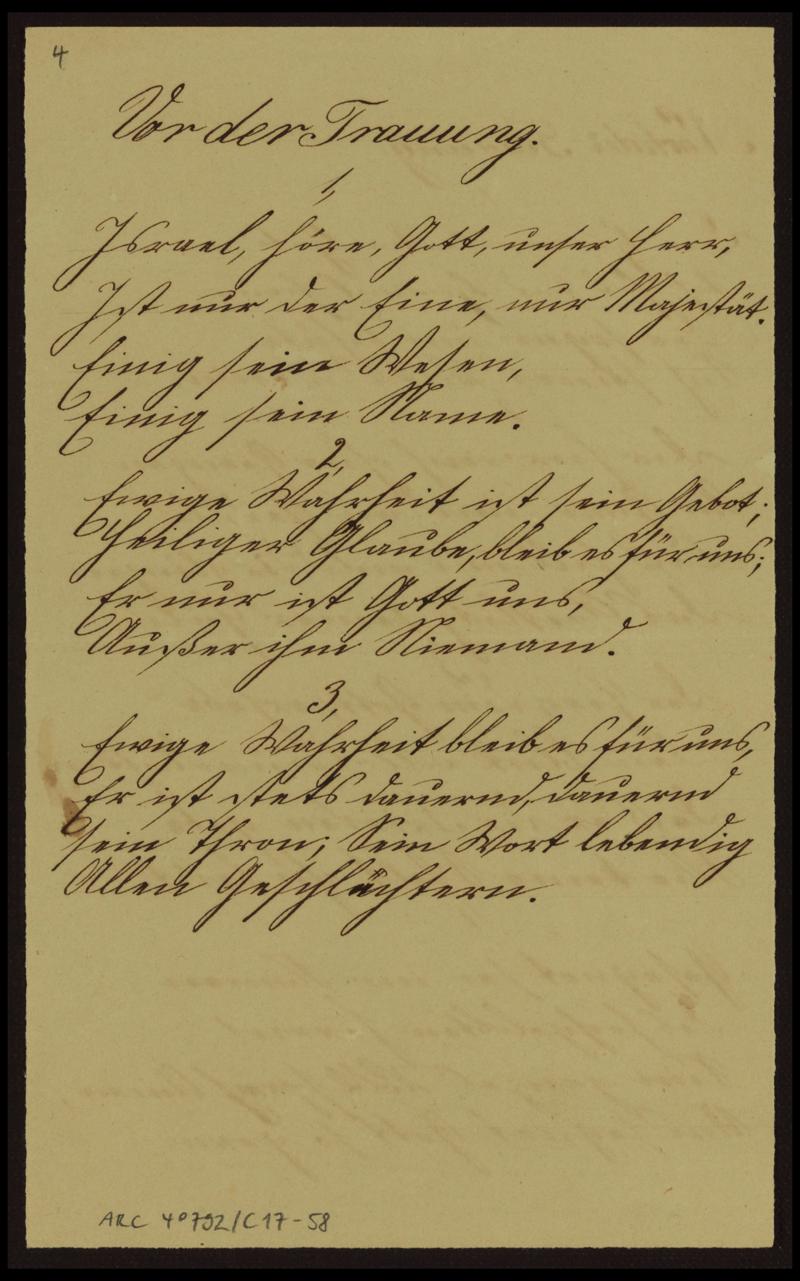 4
Vor der Trauung.
1,
Israel, höre, Gott, unser Herr,
Ist nur der Eine, nur Majestät.
Einig sein Wesen,
Einig sein Name.
2,
Ewige Wahrheit ist sein Gebot;
Heiliger Glaube, bleib es für uns;
Er nur ist Gott uns,
Außer ihm Niemand.
3,
Ewige Wahrheit bleib es für uns,
Er ist stets dauernd, dauernd
sein Thron; Sein Wort lebendig
Allen Geschlächtern.
ARC 4°792/C17-58